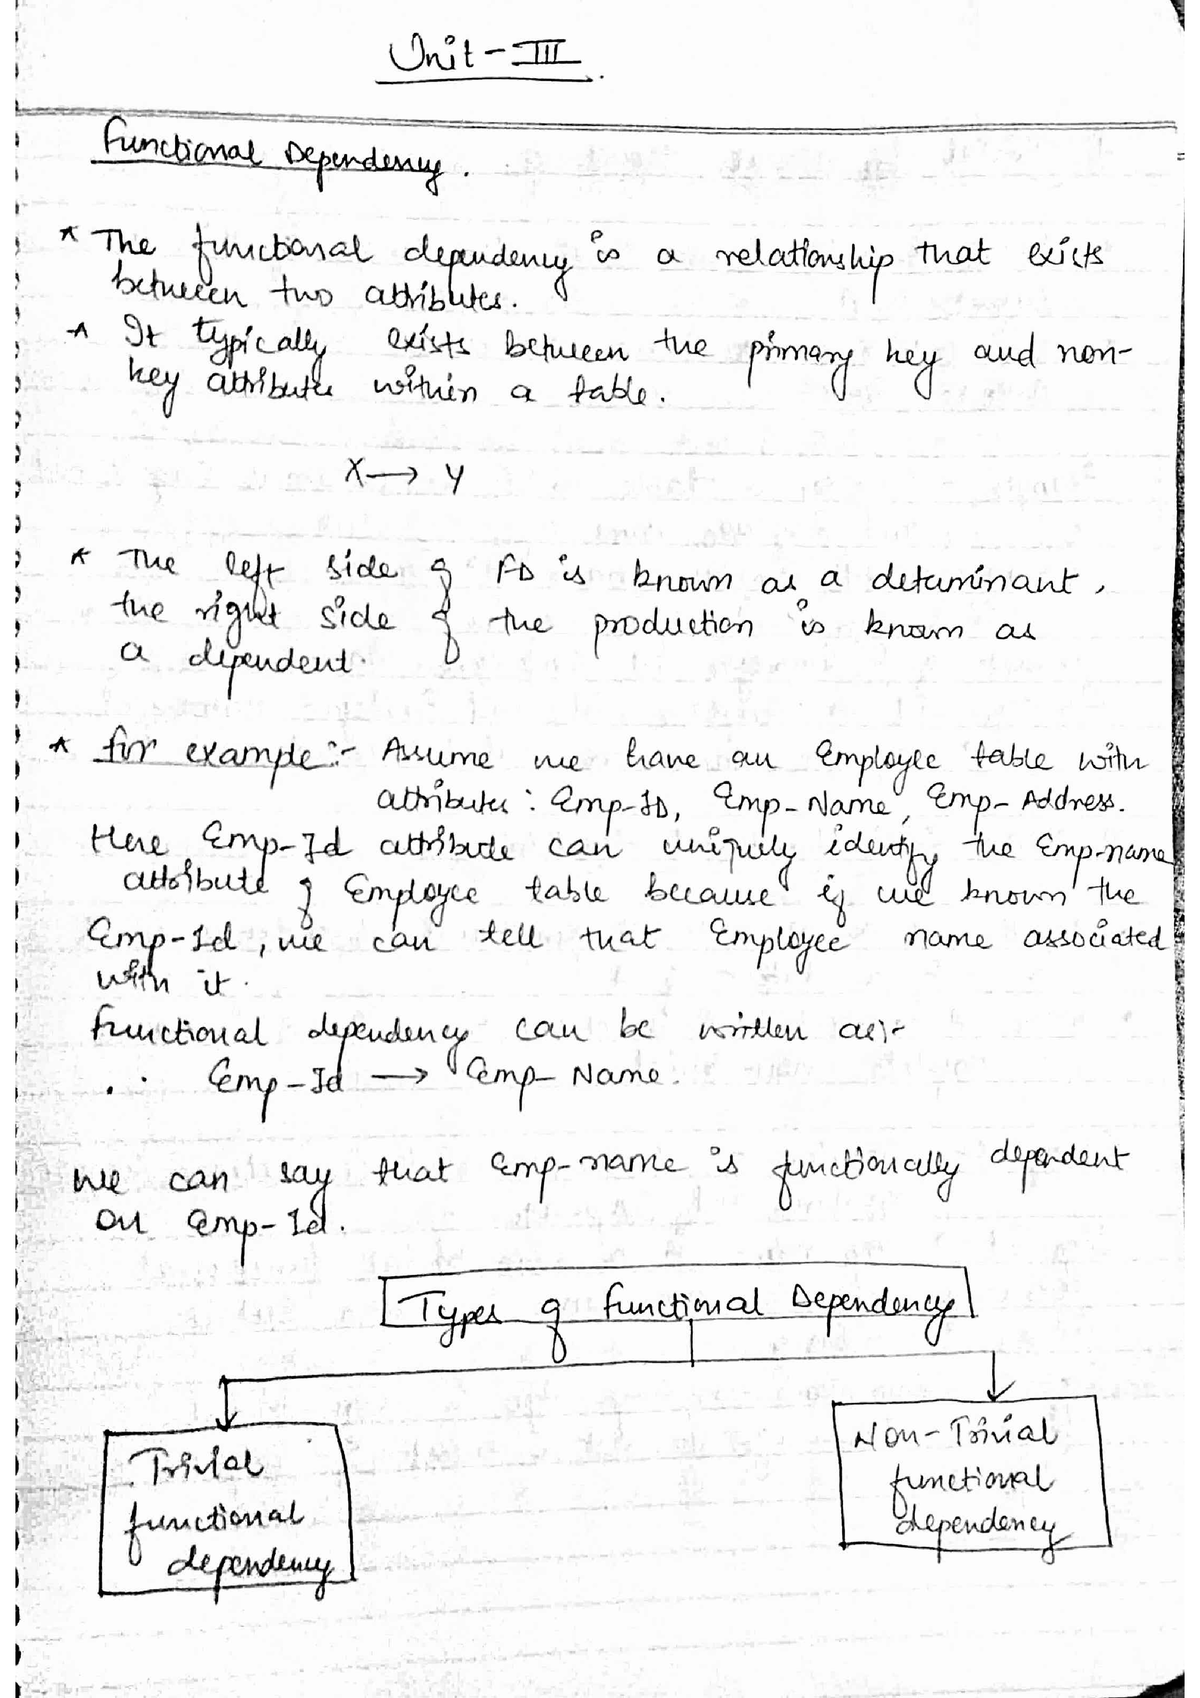 Unit - III
Functional Dependency.
* The functional dependency is a relationship that exists
between two attributes.
* It typically exists between the primary key and non-
key attribute within a table.
X → Y
* The left side of FD is known as a determinant,
the right side of the production is known as
a dependent.
* for example:- Assume we have an Employee table with
attributes: Emp-ID, Emp-Name, Emp-Address.
Here Emp-Id attribute can uniquely identify the Emp-name
attribute of Employee table because if we known the
Emp-Id, we can tell that Employee name associated
with it.
Functional dependency can be written as:-
Emp-Id → Emp-Name.
We can say that Emp-name is functionally dependent
on Emp-Id.
Types of Functional Dependency
Trivial
functional
dependency
Non-Trivial
functional
dependency